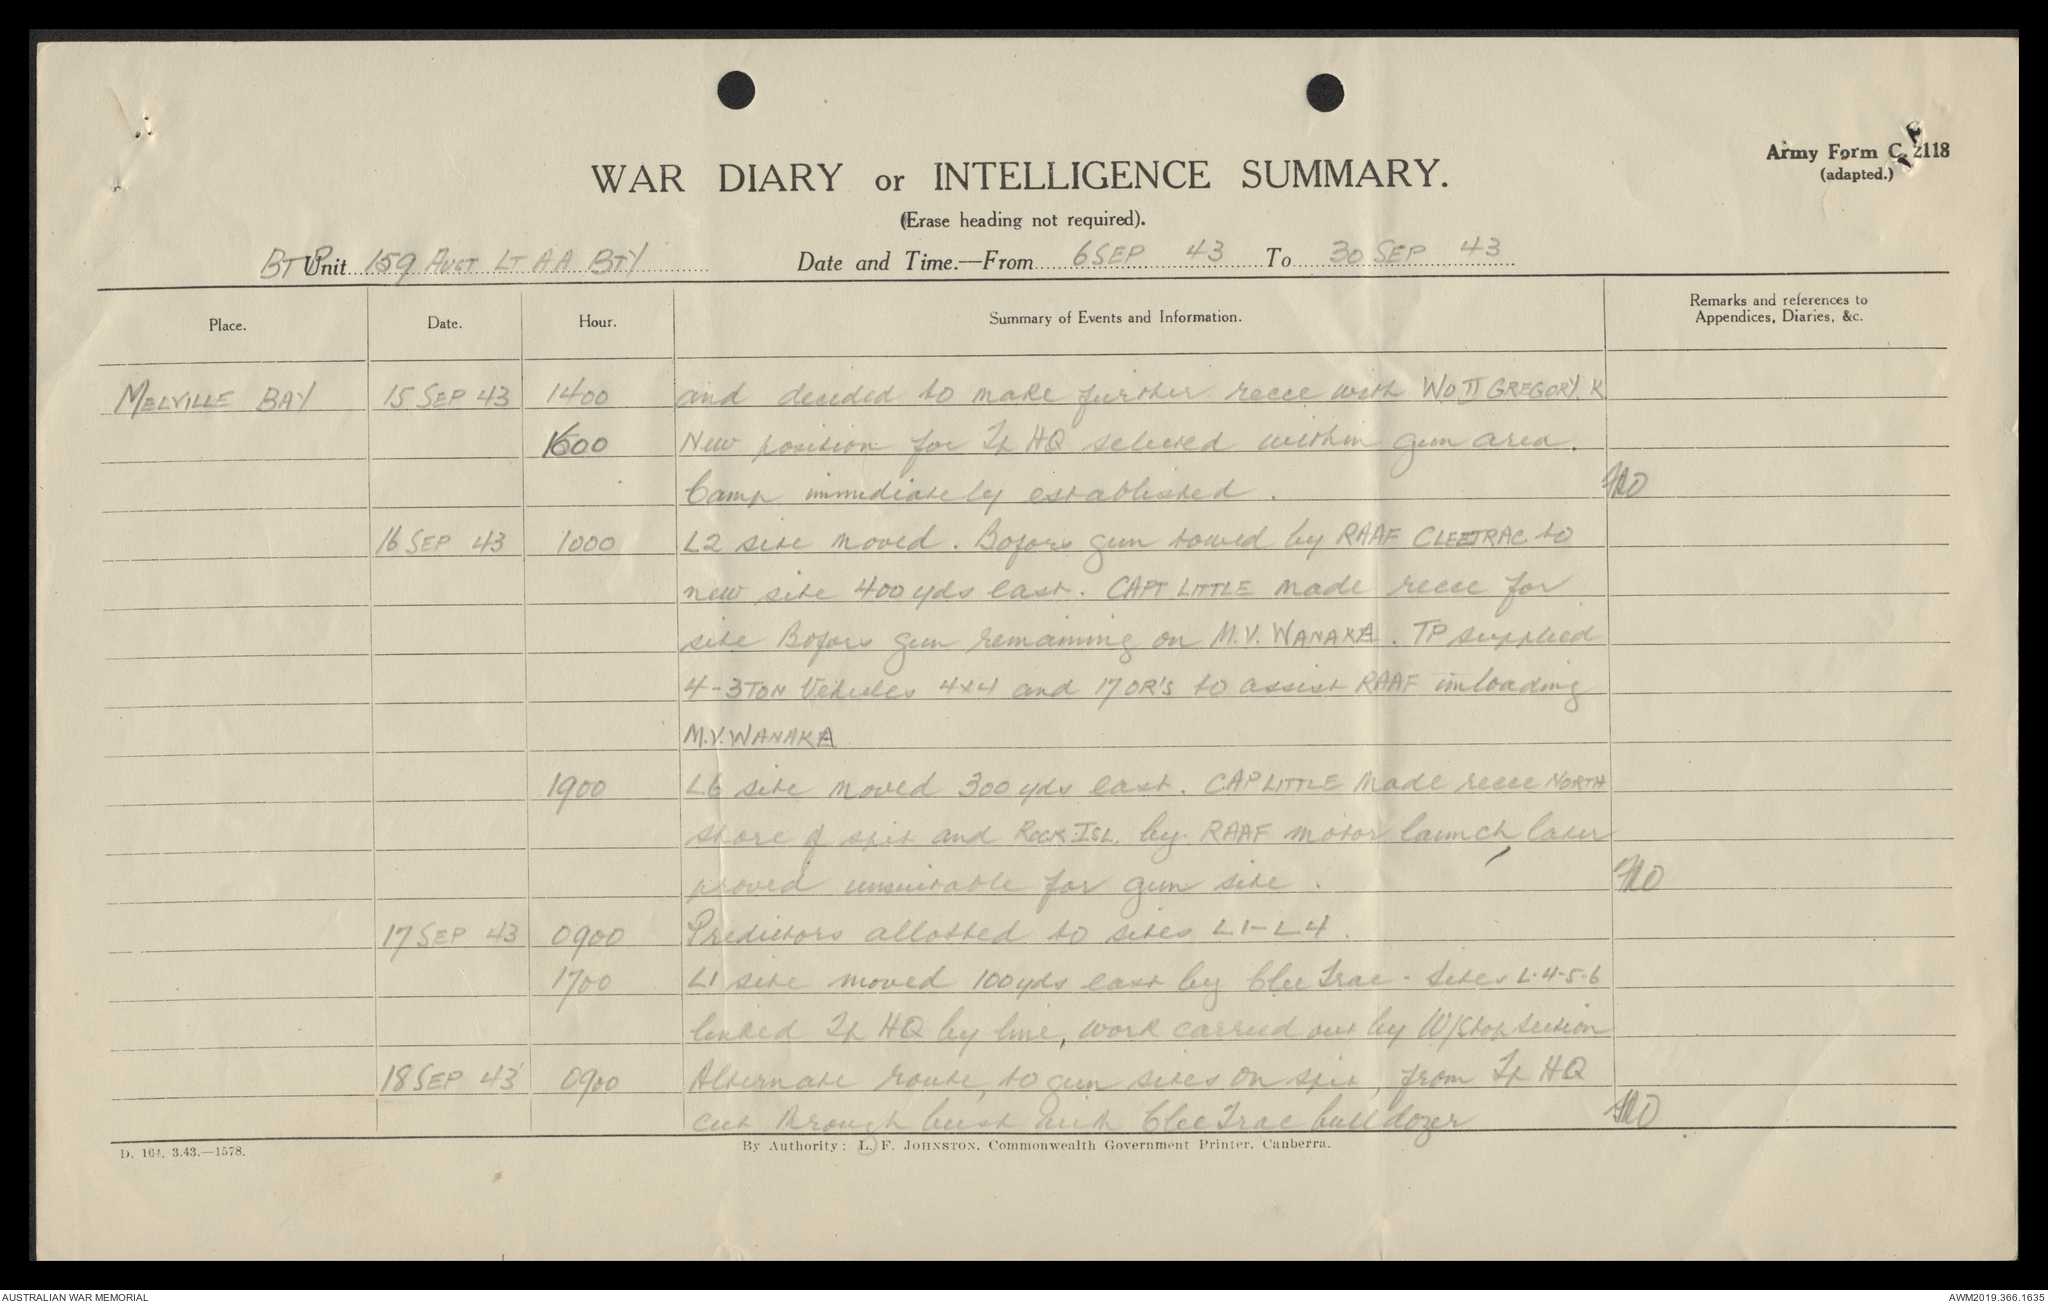 Army Form C. 2118
(adapted.)
WAR DIARY or INTELLIGENCE SUMMARY.
(Erase heading not required).
BTP Unit 159 Aust LT AA BTY Date and Time.—From 6 SEP 43 To 30 SEP 43
Place. Date. Hour. Summary of Events and Information. Remarks and references to Appendices, Diaries, &c.
MELVILLE BAY 15 SEP 43 1400 and decided to make further recce with WO II GREGORY. K
1600 New position for Tp HQ selected within gun area.
Camp immediately established.
16 SEP 43 1000 L2 site moved. Bofors gun towed by RAAF CLEETRAC to
new site 400 yds east. CAPT LITTLE made recce for
site Bofors gun remaining on M.V. WANAKA. TP supplied
4-3 TON Vehicles 4x4 and 17 OR'S to assist RAAF unloading
M.V. WANAKA
1900 L6 site moved 300 yds east. CAP LITTLE made recce NORTH
shore of spit and ROCK ISL. by RAAF motor launch, later
proved unsuitable for gun site.
17 SEP 43 0900 Predictors allotted to sites L1-L4.
1700 L1 site moved 100 yds east by Clee Trac - Sites L-4-5-6
linked Tp HQ by line, work carried out by W/Shop Section
18 SEP 43 0900 Alternate route, to gun sites on spit, from Tp HQ
cut through bush with Clee Trac bulldozer
D. 164. 3.43.—1578. By Authority: L. F. JOHNSTON, Commonwealth Government Printer, Canberra.
AUSTRALIAN WAR MEMORIAL AWM2019.366.1635